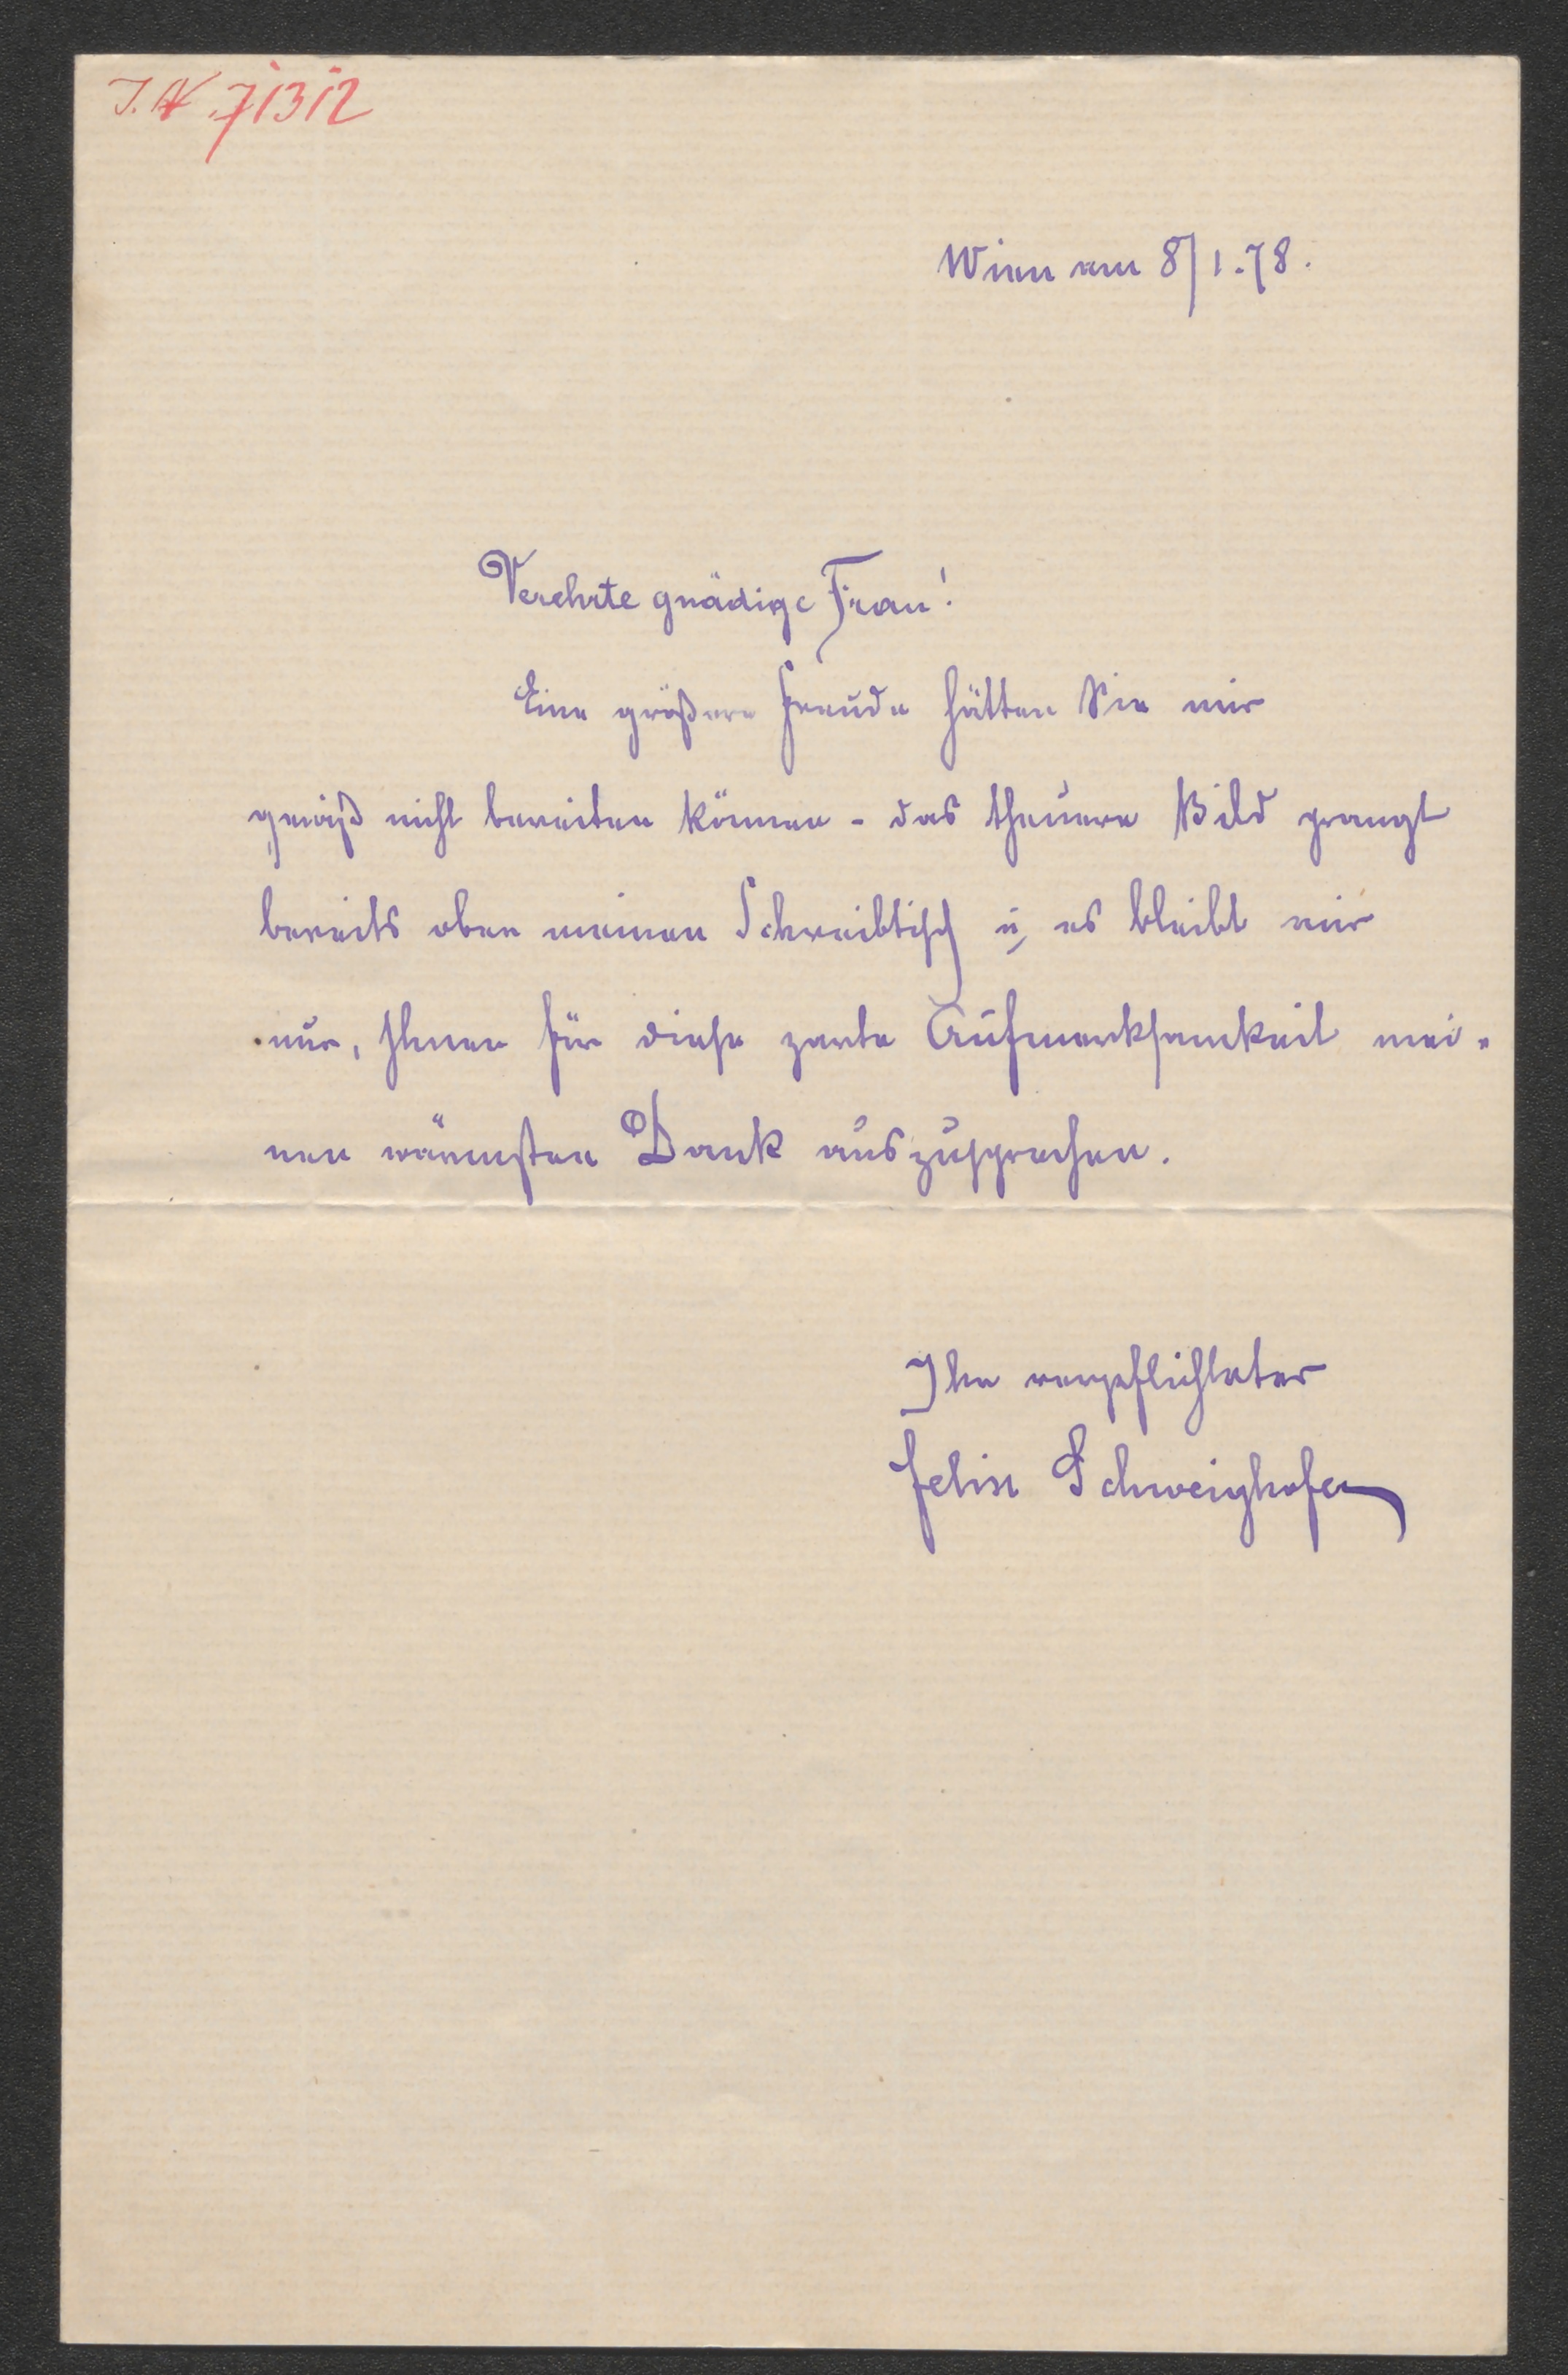 I.N. 71312
Wien am 8/1.78.
Verehrte gnädige Frau!
Eine größere Freude hätten Sie mir
gewiß nicht bereiten können - das theuere Bild prangt
bereits ober meinen Schreibtisch u, es bleibt mir
nur, Ihnen für diese zarte Aufmerksamkeit mei-
nen wärmsten Dank auszusprechen.
Ihr verpflichteter
Felix Schweighofer